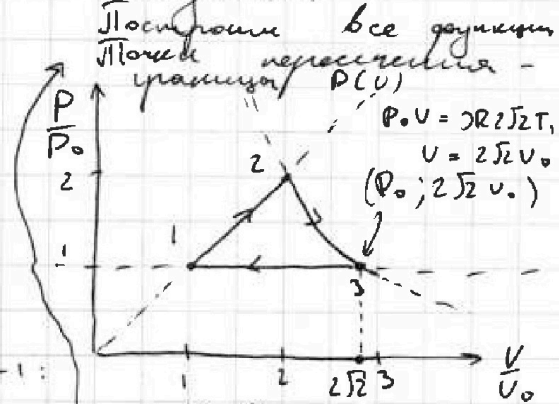 Построим все функции
Точки пересечения -
границы P(V)
P₀V = νR2√2T₁
V = 2√2V₀
(P₀; 2√2V₀)
P/P₀
2
2
1
1
3
1 2 2√2 3
V/V₀
-1: